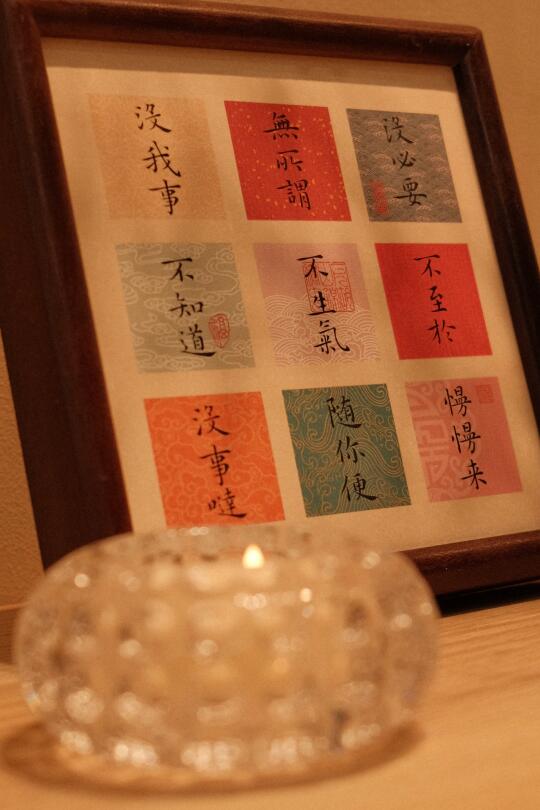 沒我事
無所謂
沒必要
不知道
不生氣
不至於
沒事噠
随你便
慢慢来